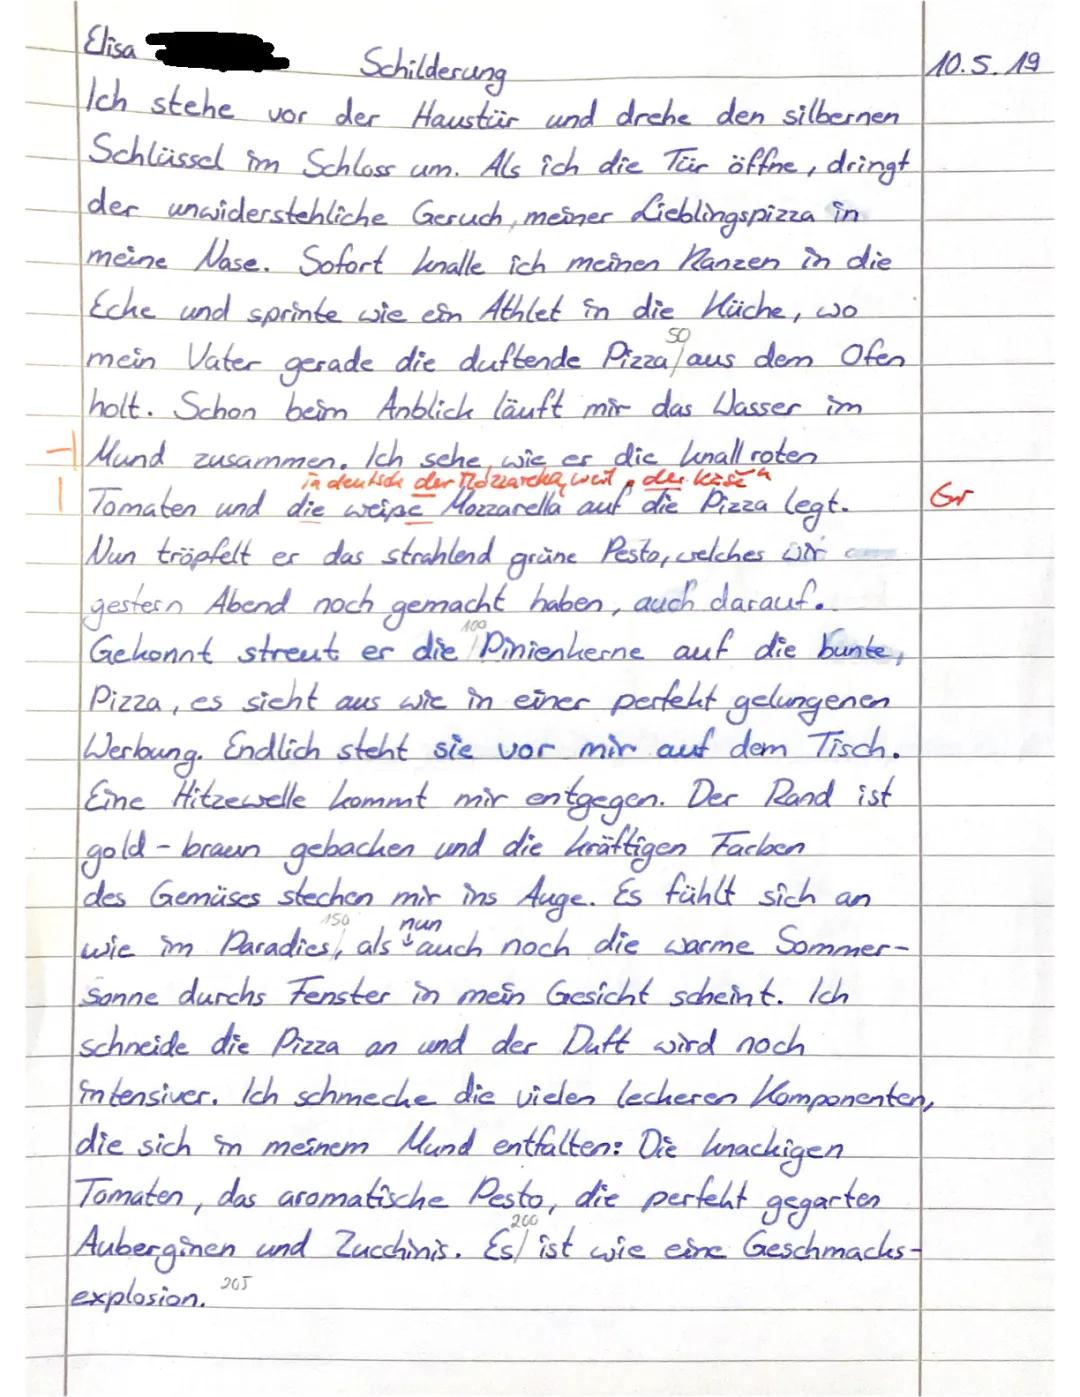 Elisa
Schilderung
10.5.19
Ich stehe vor der Haustür und drehe den silbernen
Schlüssel im Schloss um. Als ich die Tür öffne, dringt
der unwiderstehliche Geruch, meiner Lieblingspizza in
meine Nase. Sofort knalle ich meinen Ranzen in die
Ecke und sprinte wie ein Athlet in die Küche, wo
50
mein Vater gerade die duftende Pizza/aus dem Ofen
holt. Schon beim Anblick läuft mir das Wasser im
Mund zusammen. Ich sehe, wie er die knallroten
in deutsch der Mozzarella, weil "der Käse"
Tomaten und die weiße Mozzarella auf die Pizza legt.
Gr
Nun tröpfelt er das strahlend grüne Pesto, welches wir
gestern Abend noch gemacht haben, auch darauf.
100
Gekonnt streut er die/Pinienkerne auf die bunte,
Pizza, es sieht aus wie in einer perfekt gelungenen
Werbung. Endlich steht sie vor mir auf dem Tisch.
Eine Hitzewelle kommt mir entgegen. Der Rand ist
gold-braun gebacken und die kräftigen Farben
des Gemüses stechen mir ins Auge. Es fühlt sich an
150 nun
wie im Paradies/, als auch noch die warme Sommer-
sonne durchs Fenster in mein Gesicht scheint. Ich
schneide die Pizza an und der Duft wird noch
intensiver. Ich schmecke die vielen leckeren Komponenten,
die sich in meinem Mund entfalten: Die knackigen
Tomaten, das aromatische Pesto, die perfekt gegarten
200
Auberginen und Zucchinis. Es/ist wie eine Geschmacks-
explosion. 205